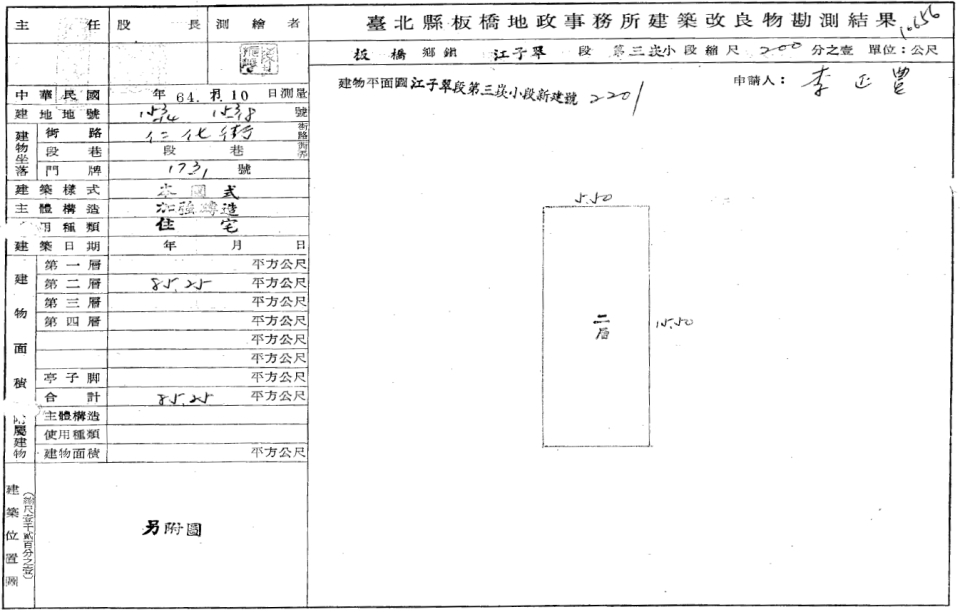 臺北縣板橋地政事務所建築改良物勘測結果
10656
板橋 鄉鎮 江子翠 段 第三崁小段 縮尺 200 分之壹 單位：公尺
建物平面圖 江子翠段第三崁小段新建號 2201
申請人： 李正豐
主任 股長 測繪者
中華民國 年 64. 月. 10 日測量
建地地號 號
建物坐落
街路 仁化街 街路
段巷 段 巷
門牌 號
建築樣式 本國式
主體構造 加強磚造
用種類 住宅
建築日期 年 月 日
建物面積
第一層 平方公尺
第二層 85.25 平方公尺
第三層 平方公尺
第四層 平方公尺
平方公尺
平方公尺
亭子脚 平方公尺
合計 85.25 平方公尺
附屬建物
主體構造
使用種類
建物面積 平方公尺
建築位置圖
（縮尺壹千貳百分之壹）
另附圖
5.50
二層
15.50